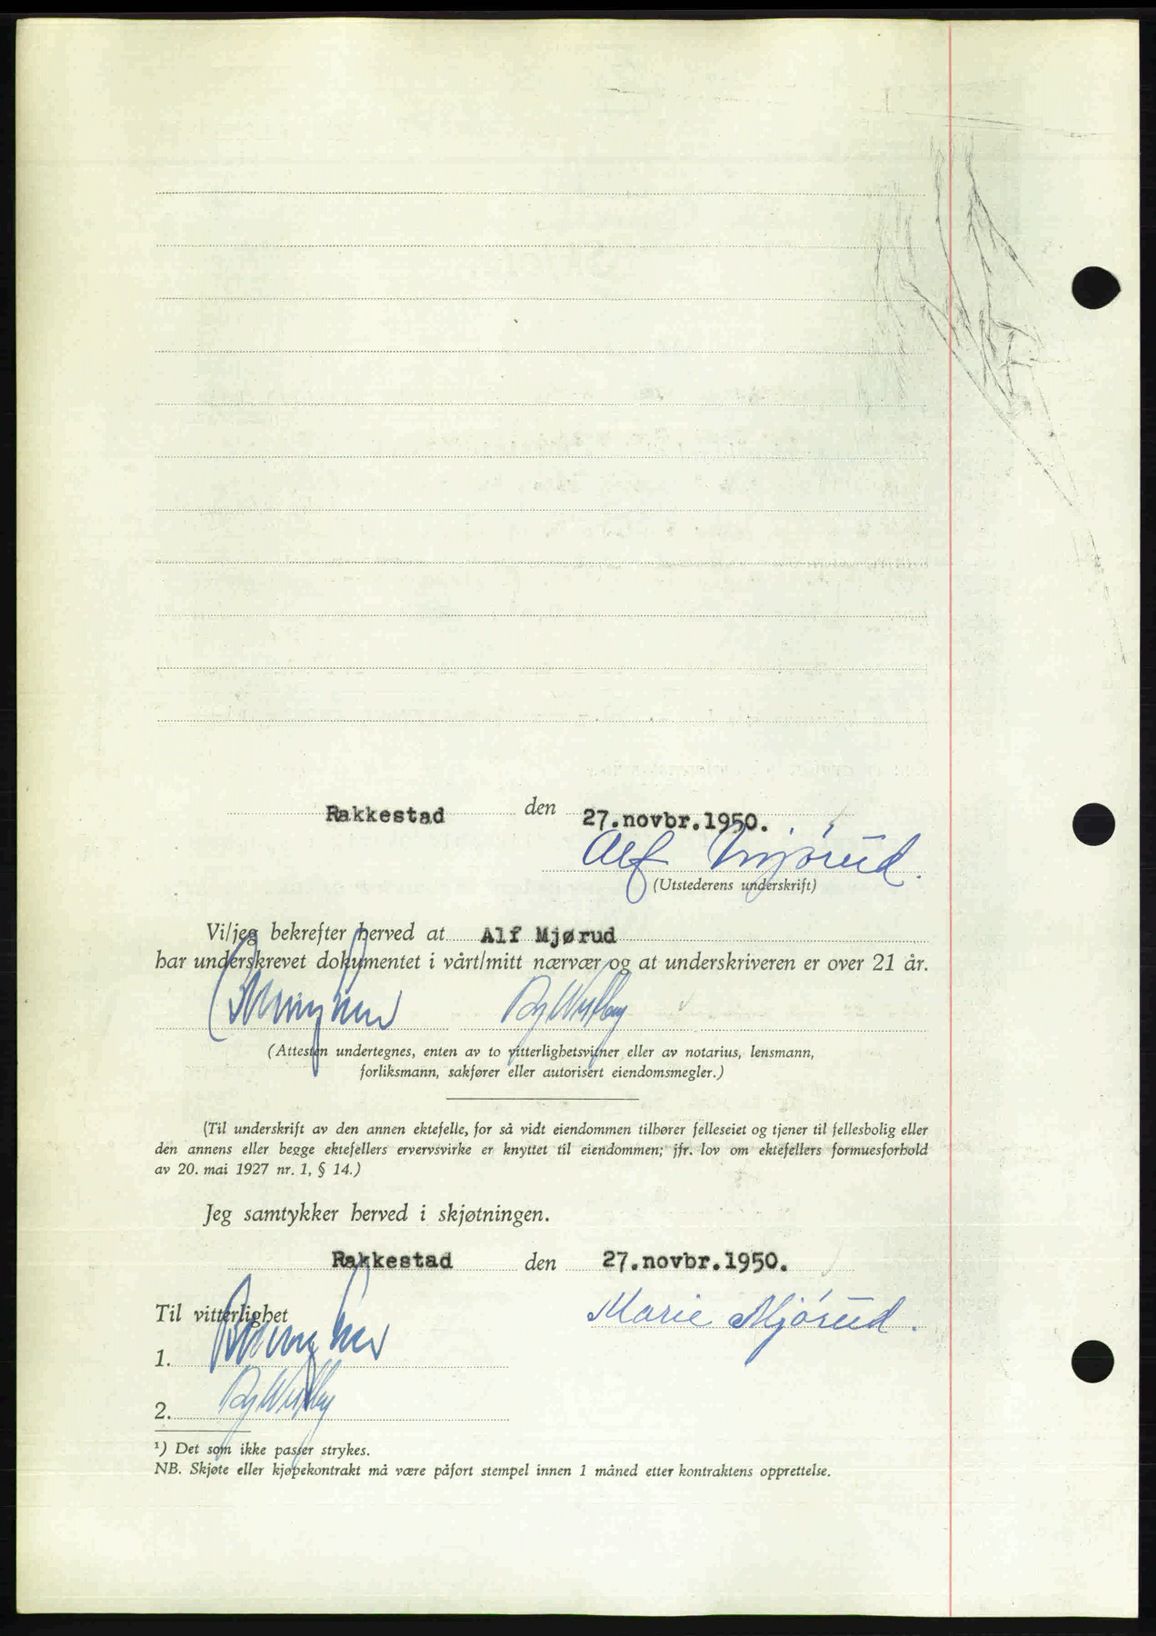 Rakkestad den 27.novbr.1950.
Alf Mjørud.
(Utstederens underskrift)
Vi/jeg bekrefter herved at Alf Mjørud
har underskrevet dokumentet i vårt/mitt nærvær og at underskriveren er over 21 år.
(Attesten undertegnes, enten av to vitterlighetsvitner eller av notarius, lensmann,
forliksmann, sakfører eller autorisert eiendomsmegler.)
(Til underskrift av den annen ektefelle, for så vidt eiendommen tilhører felleseiet og tjener til fellesbolig eller
den annens eller begge ektefellers ervervsvirke er knyttet til eiendommen; jfr. lov om ektefellers formuesforhold
av 20. mai 1927 nr. 1, § 14.)
Jeg samtykker herved i skjøtningen.
Rakkestad den 27.novbr.1950.
Til vitterlighet Marie Mjørud.
1.
2.
¹) Det som ikke passer strykes.
NB. Skjøte eller kjøpekontrakt må være påført stempel innen 1 måned etter kontraktens opprettelse.